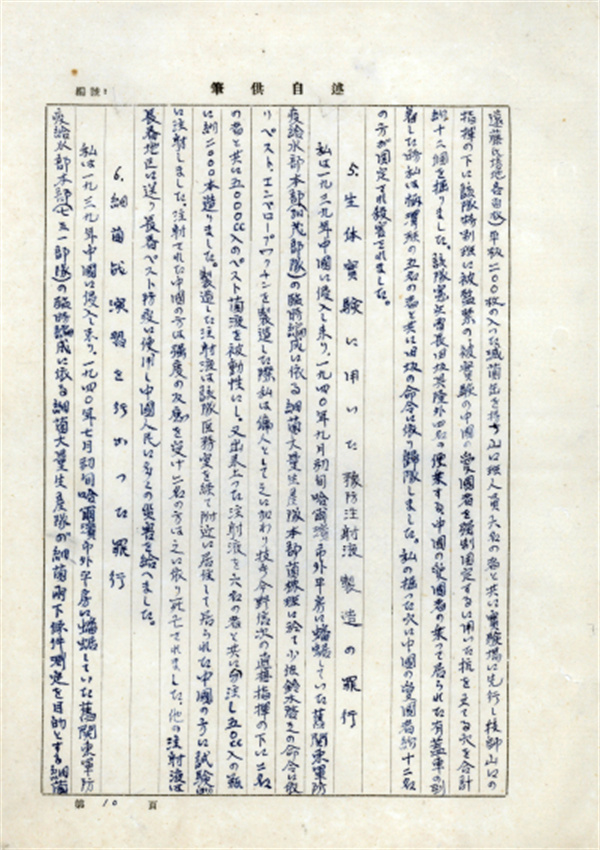 筆供自述
編號：
平板二〇〇枚の入った滅菌缶を持ち山口班人員六名の者と共に實驗場に先行し技師山口の
指揮の下に該隊特別班に被監禁の被實驗の中国の愛国者を強制固定するに用いた杭を立てる穴を合計
約十二個を掘りました。該隊憲兵曹長田坂 外四名の便乗する中国の愛国者の乗って居られた有蓋車の到
着した時私は 班の五名の者と共に田坂の命令に依り歸隊しました。私の掘った穴に中国の愛國者約十二名
の方が固定され殺害されました。
5. 生体實驗に用いた豫防注射液製造の罪行
私は一九三九年中國に侵入し来り、一九四〇年九月初旬哈爾濱市外平房に蟠踞していた舊関東軍防
疫給水部本部(加茂部隊)の臨時編成に依る細菌大量生産隊本部菌株班に於て少佐鈴木啓之の命令に依
りペスト、エンベロープワクチンを製造した際私は傭人として之に加わり技手今野信次の直接指揮の下に二名
の者と共に五〇〇〇cc入のペスト菌液を被動性にし、又出来上った注射液を六名の者と共に分注し五〇cc入の瓶
に約二〇〇〇本造りました。製造した注射液は該隊医務室を經て附近に居住して居られた中國の方に試験的
に注射しました。注射された中國の方は強度の反應を受け一名の方は之に依り死亡されました。他の注射液は
長春地區に送り長春ペスト防疫に使用し中國人民に多くの災害を給へました。
6. 細菌戦演習を行かった罪行
私は一九三九年中國に侵入し来り、一九四〇年七月初旬哈爾濱市外平房に蟠踞していた舊関東軍防
疫給水部本部(七三一部隊)の臨時編成に依る細菌大量生産隊の細菌雨下條件測定を目的とする細菌
第 10 頁